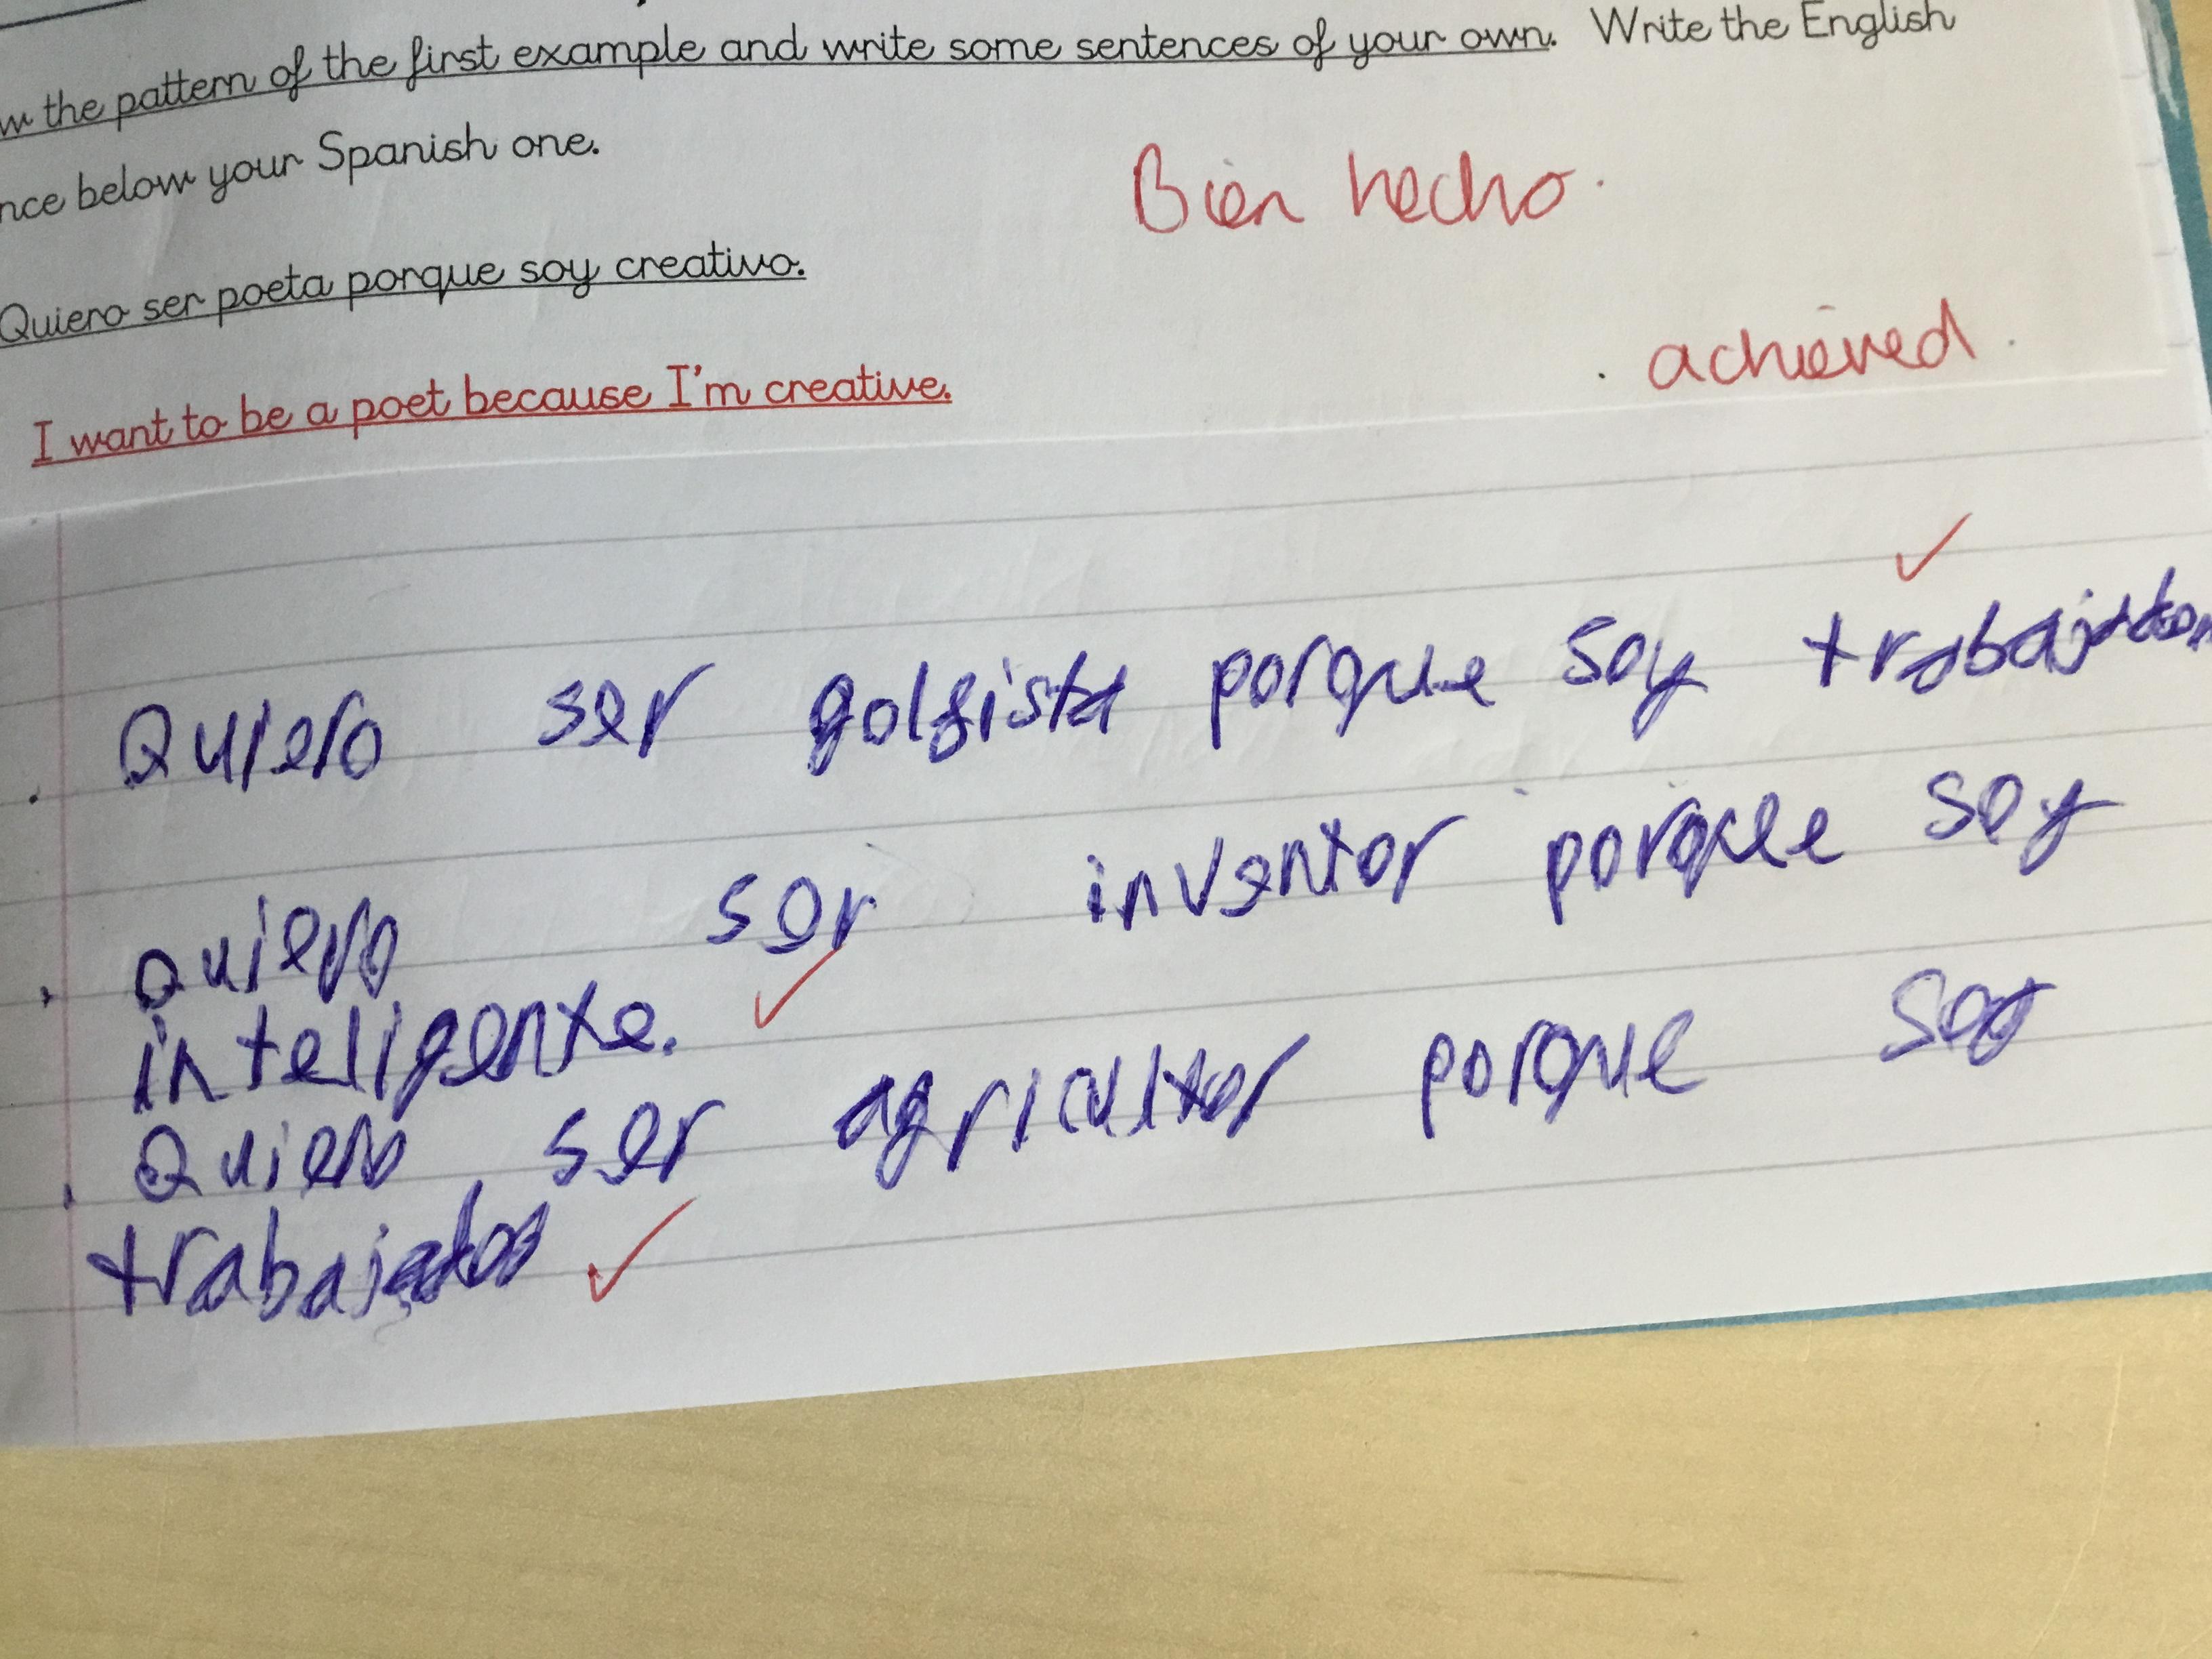 w the pattern of the first example and write some sentences of your own. Write the English
nce below your Spanish one.
Bien hecho.
Quiero ser poeta porque soy creativo.
achieved.
I want to be a poet because I'm creative.
Quiero ser golfista porque soy
Quiero ser inventor porque soy
inteligente.
Quiero ser agricultor porque soy